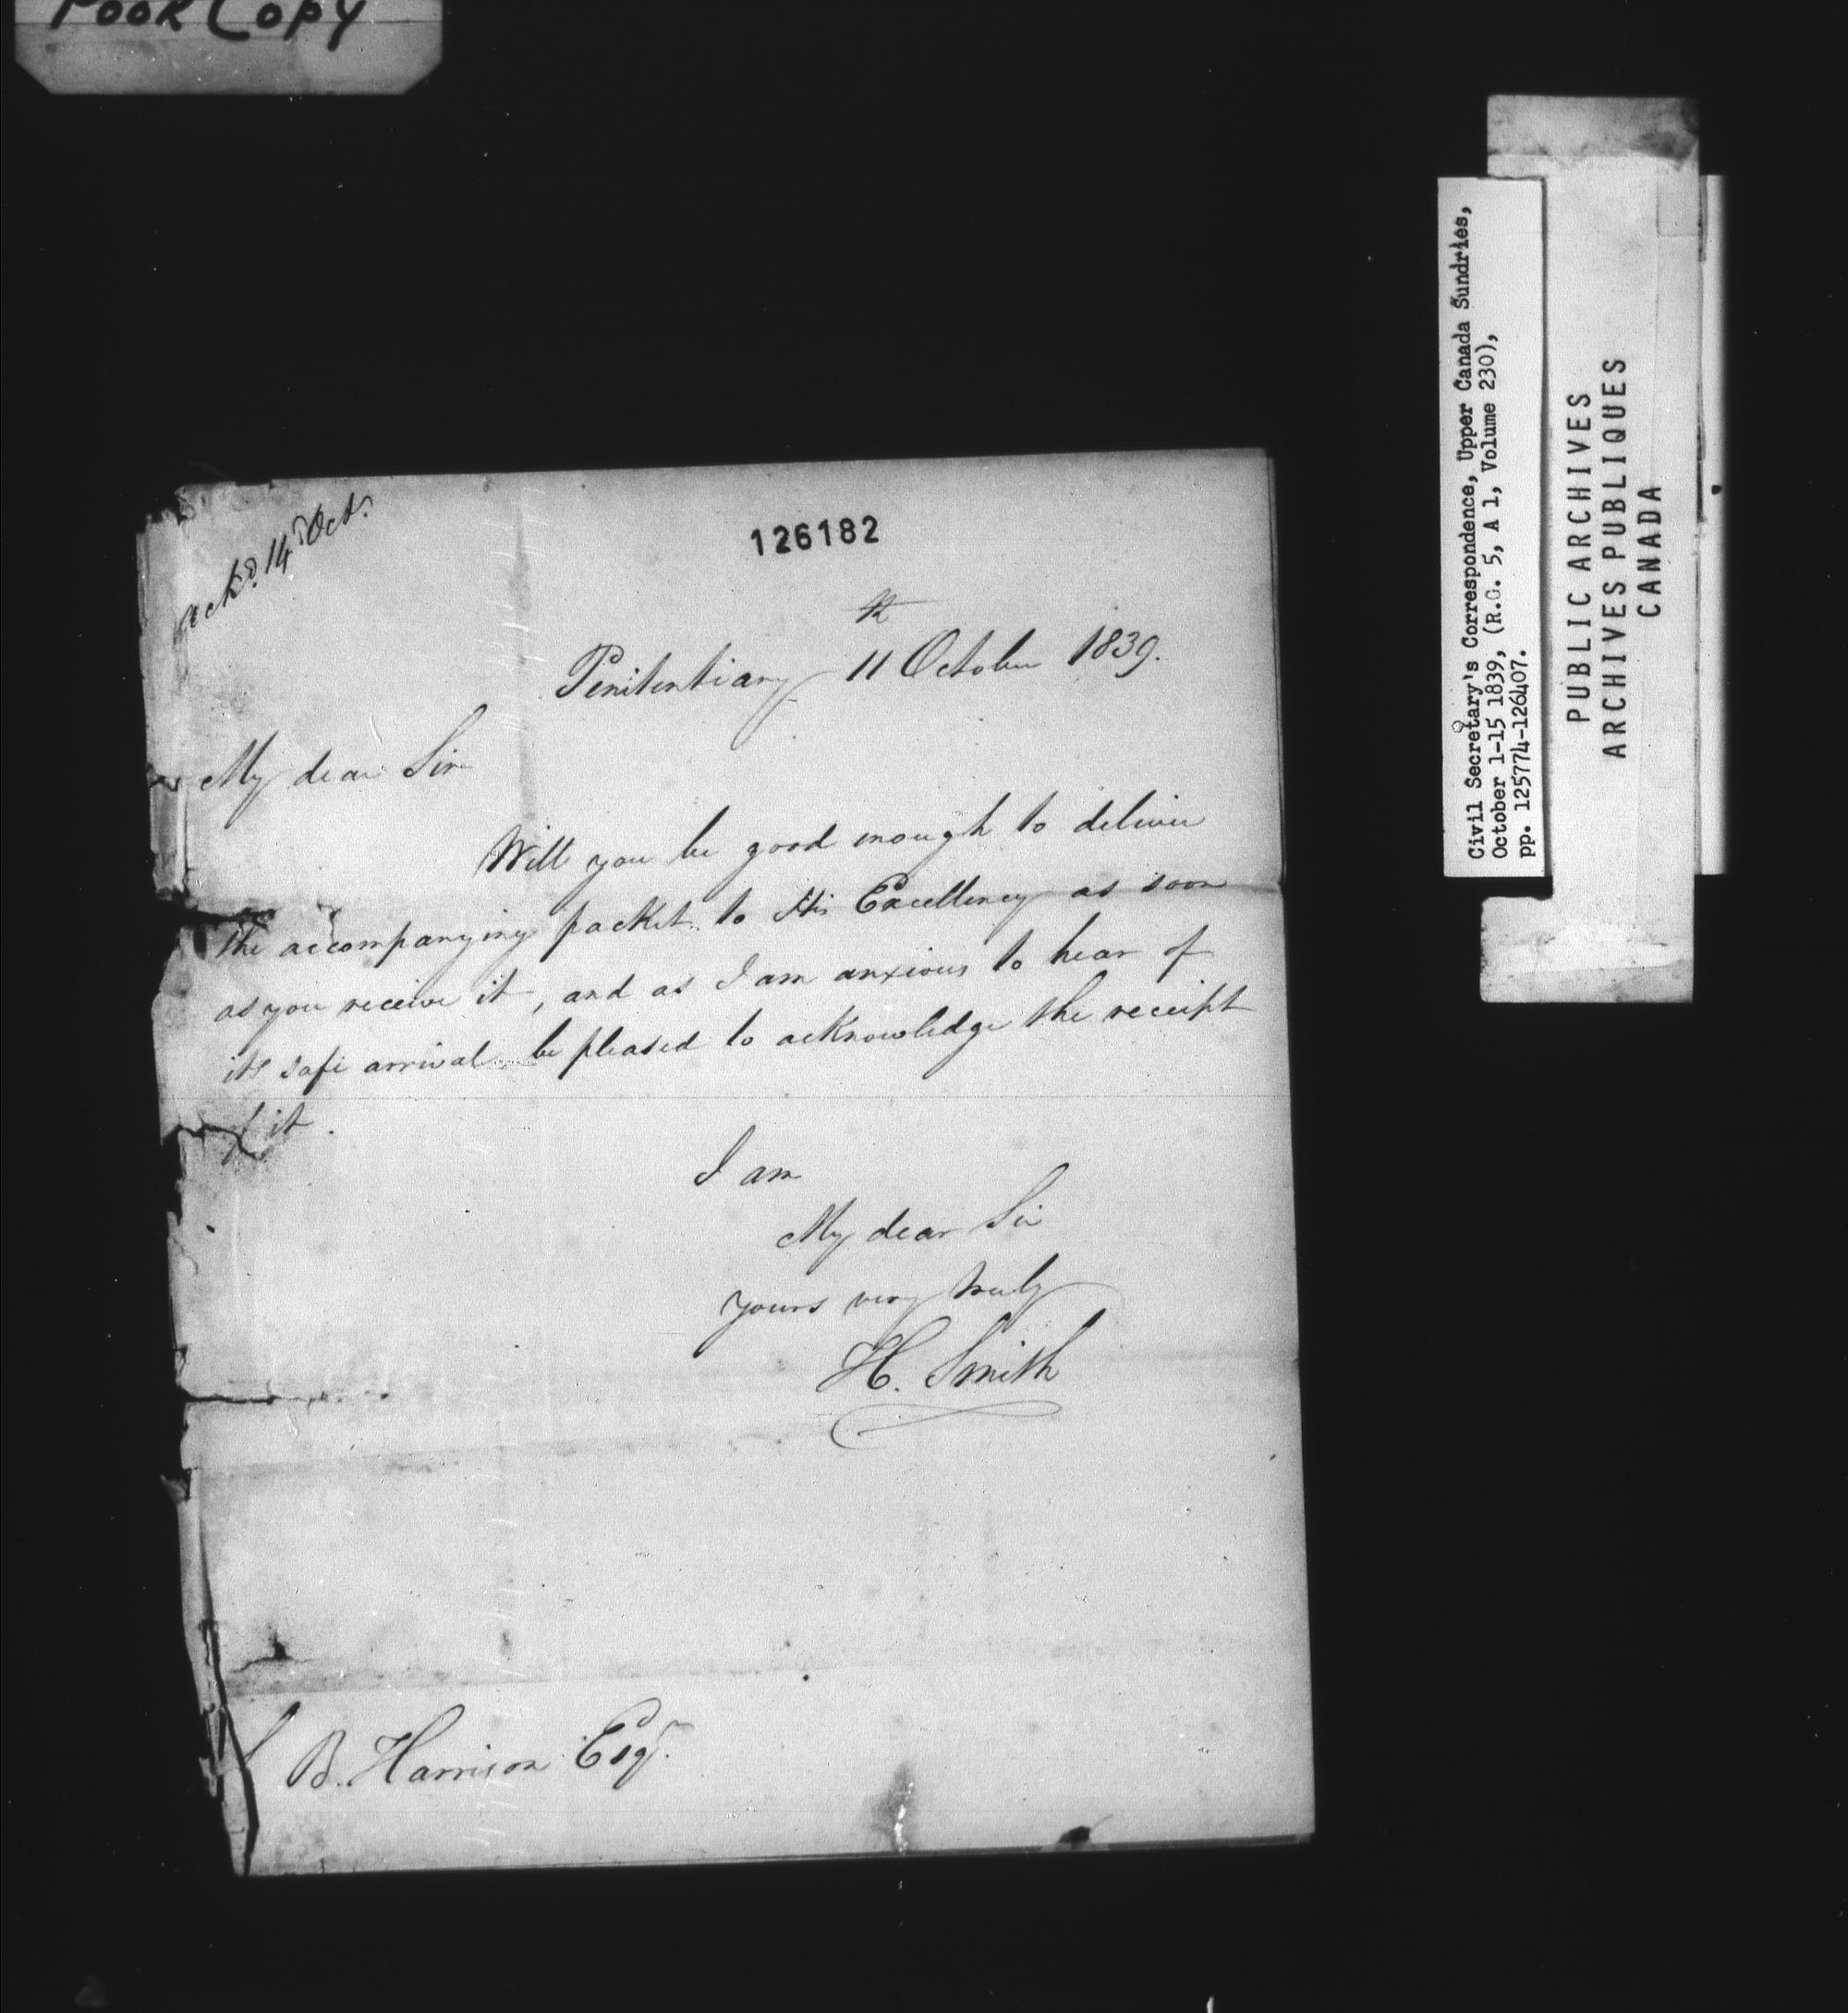 Poor Copy
Ackd. 14th Oct.
126182
Penitentiary 11th October 1839.
My dear Sir
Will you be good enough to deliver
the accompanying packet to His Excellency as soon
as you receive it, and as I am anxious to hear of
its safe arrival be pleased to acknowledge the receipt
of it.
I am
My dear Sir
yours very truly
H. Smith
S B. Harrison Esqr.
Civil Secretary's Correspondence, Upper Canada Sundries,
October 1-15 1839, (R.G. 5, A 1, Volume 230),
pp. 125774-126407.
PUBLIC ARCHIVES
ARCHIVES PUBLIQUES
CANADA